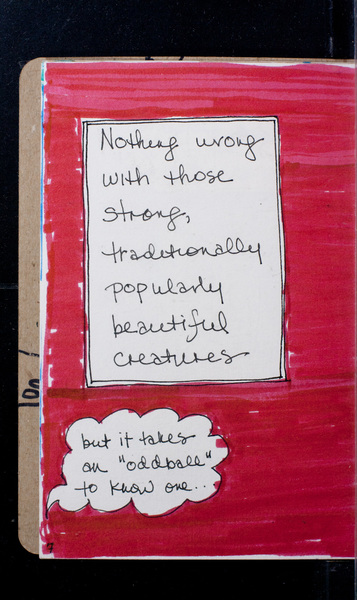 Nothing wrong
with those
strong,
traditionally
popularly
beautiful
creatures
but it takes
an "oddball"
to know one..
7